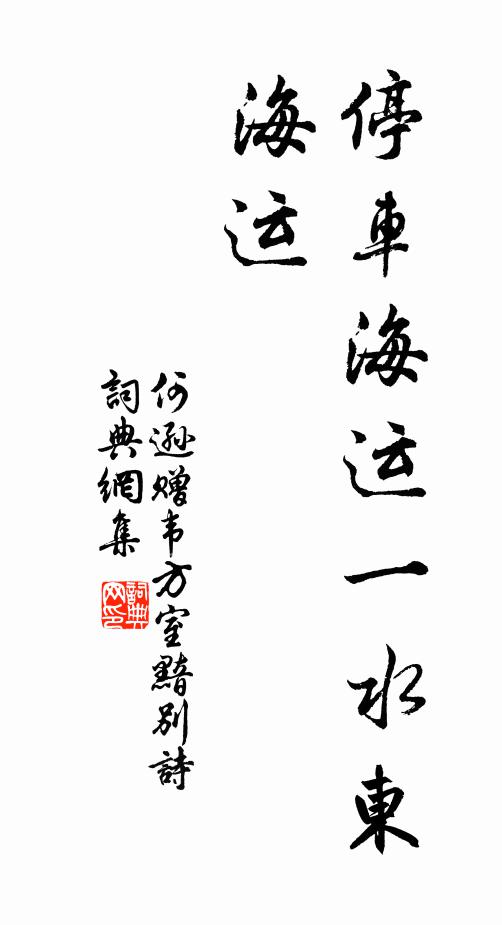 停車海运一水東
海运
何逊赠韦方室黯别詩
詞典網集
詞典网印